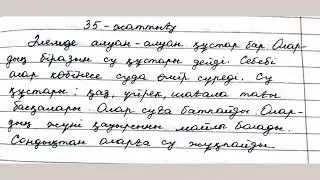 35 - жаттығу
Әлемде алуан-алуан құстар бар. Олар-
дың біразын су құстары дейді. Себебі
олар көбінесе суда өмір сүреді. Су
құстары: қаз, үйрек, шағала тағы
басқалары. Олар суға батпайды. Олар-
дың жүні қауырсыны майлы болады.
Сондықтан оларға су жұқпайды.